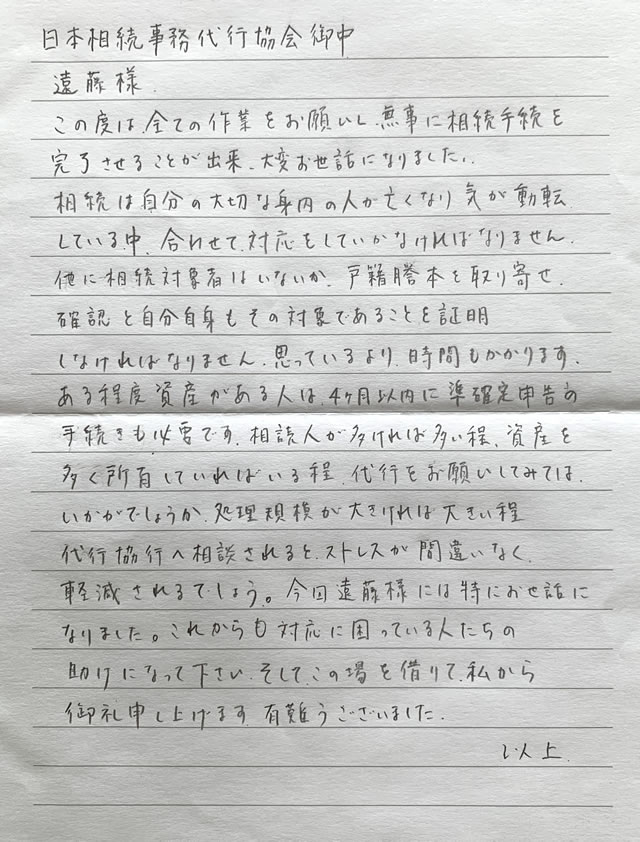 日本相続事務代行協会御中
遠藤様.
この度は、全ての作業をお願いし、無事に相続手続を
完了させることが出来、大変お世話になりました。
相続は自分の大切な身内の人が亡くなり気が動転
している中、合わせて、対応をしていかなければなりません.
他に相続対象者はいないか、戸籍謄本を取り寄せ、
確認と自分自身もその対象であることを証明
しなければなりません、思っているより、時間もかかります.
ある程度資産がある人は4ヶ月以内に準確定申告の
手続きも必要です、相談人が多ければ多い程、資産を
多く所有していればいる程、代行をお願いしてみては、
いかがでしょうか、処理規模が大きければ大きい程
代行協行へ相談されると、ストレスが間違いなく、
軽減されるでしょう。今回遠藤様には特にお世話に
なりました。これからも対応に困っている人たちの
助けになって下さい、そして、この場を借りて、私から
御礼申し上げます、有難うございました.
以上.